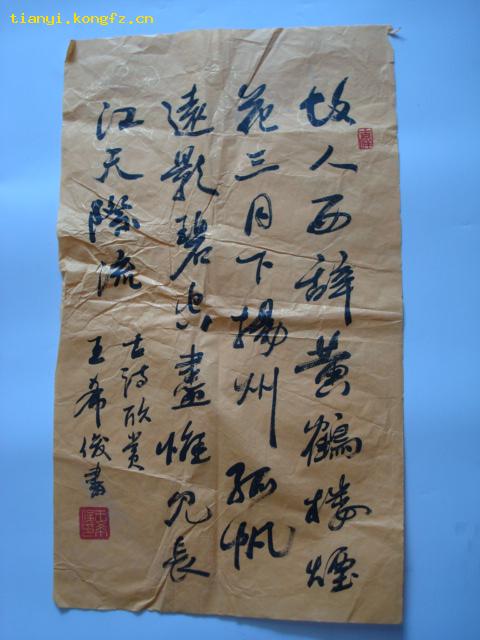 tianyi.kongfz.cn
故人西辞黄鶴楼煙
花三月下揚州孤帆
遠影碧空盡惟见長
江天際流
古诗欣赏
王希俊書